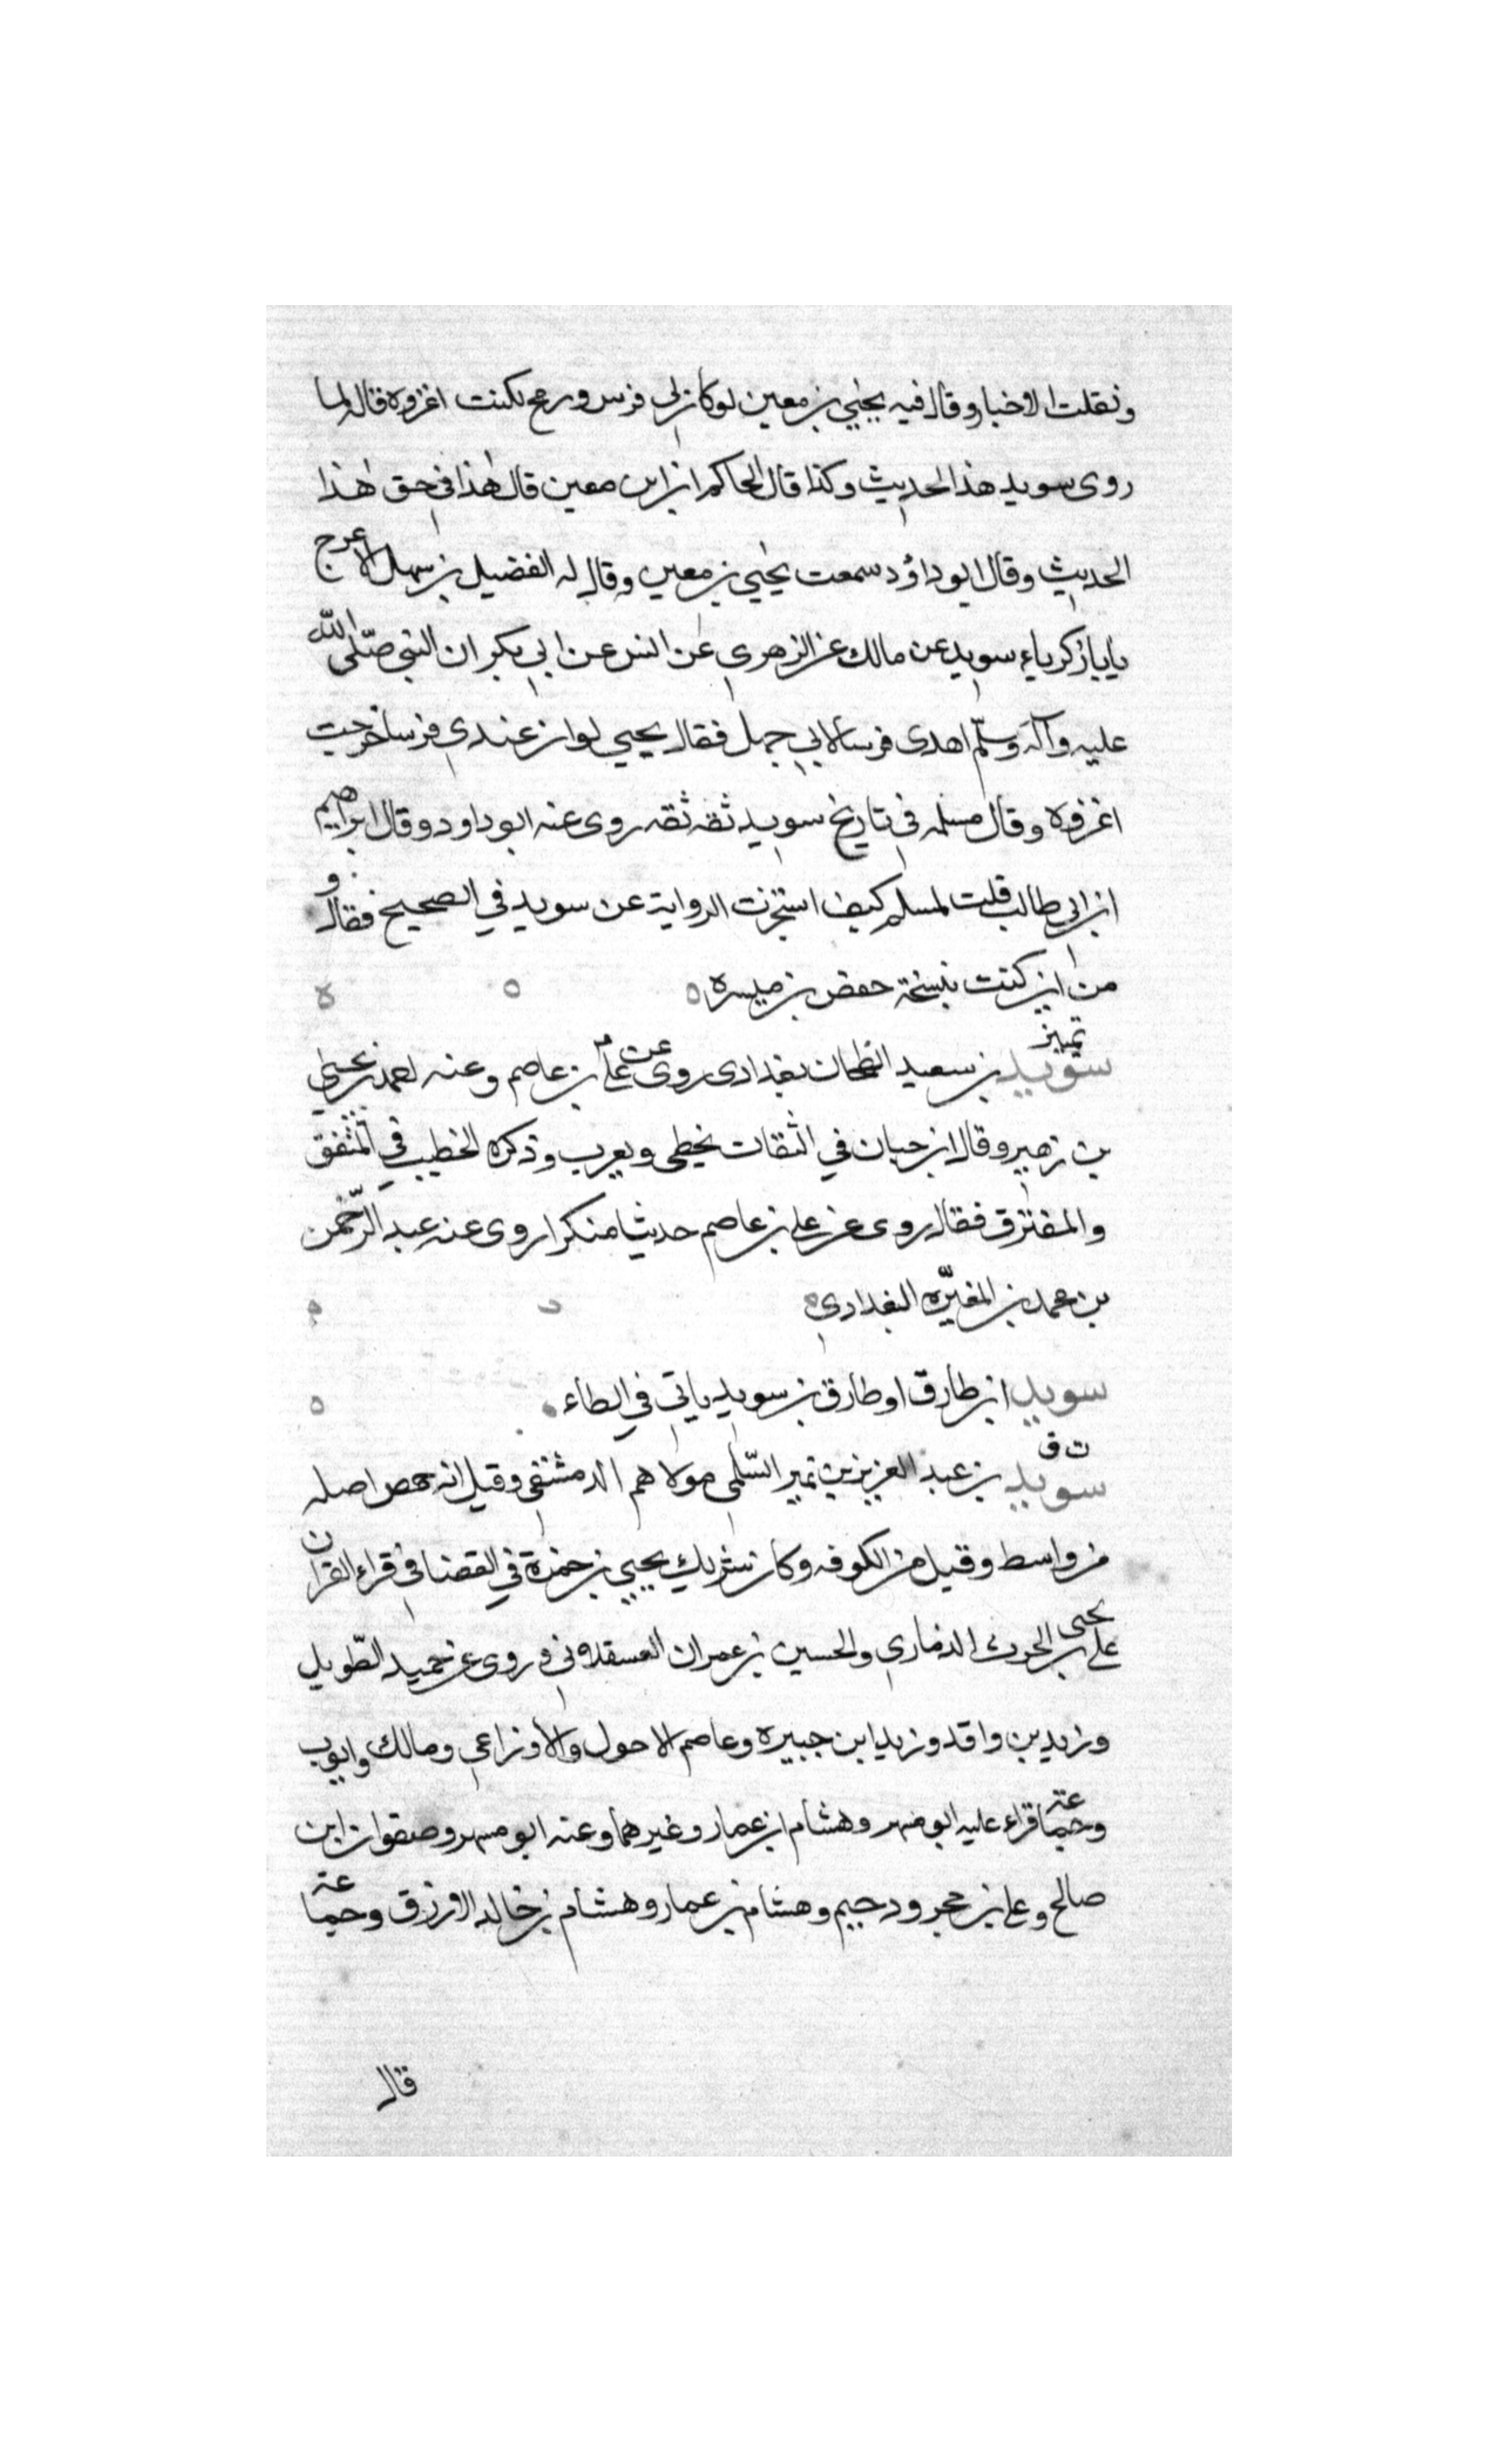 ونقلت الاخبار وقال فيه يحيي بن معين لو كان لي فرس ورمح لكنت اغزوه قاله لما
روى سويد هذا الحديث وكذا قال الحاكم ان ابن معين قال هذا في حق هذا
الحديث وقال ابو داؤد سمعت يحيي بن معين وقال له الفضيل بن سهل الاعرج
يابا زكرياء سويد عن مالك عن الزهري عن انس عن ابي بكر ان النبي صلّى الله
عليه وآله وسلّم اهدى فرسا لابي جهل فقال يحيي لو ان عندي فرسا خرجت
اغزوه وقال مسلمه في تاريخ سويد ثقه ثقه روى عنه ابو داود وقال ابراهيم
ابن ابي طالب قلت لمسلم كيف استجزت الرواية عن سويد في الصحيح فقال و
من اين كنت بنسخة حفص بن ميسره
تمييز
سويد بن سعيد الطحان بغدادى روى عن علي بن عاصم وعنه احمد بن يحيي
بن زهير وقال ابن حبان في الثقات يخطى ويغرب وذكره الخطيب في المتفق
والمفترق فقال روى عن علي بن عاصم حديثا منكرا روى عنه عبد الرّحمن
بن محمد بن المغيّره البغدادي
سويد ابن طارق او طارق بن سويد ياتي في الطاء
ت ق
سويد بن عبد العزيز بن نمير السّلمي مولاهم الدمشقي وقيل انه حمص اصله
من واسط وقيل من الكوفه وكان شريك يحيي بن حمزة في القضا في قراء القران
على يحيى بن الحرث الذماري والحسين بن عمران العسقلاني وروى عن حميد الطّويل
وزيد بن واقد وزيد ابن جبيره وعاصم الاحول والاوزاعي ومالك وايوب
وجماعته قراء عليه ابو مسهر وهشام ابن عمار وغيرهما وعنه ابو مسهر وصفوان ابن
صالح وعلي بن حجر ودحيم وهشام بن عمار وهشام بن خالد الازرق وجماعته
قال